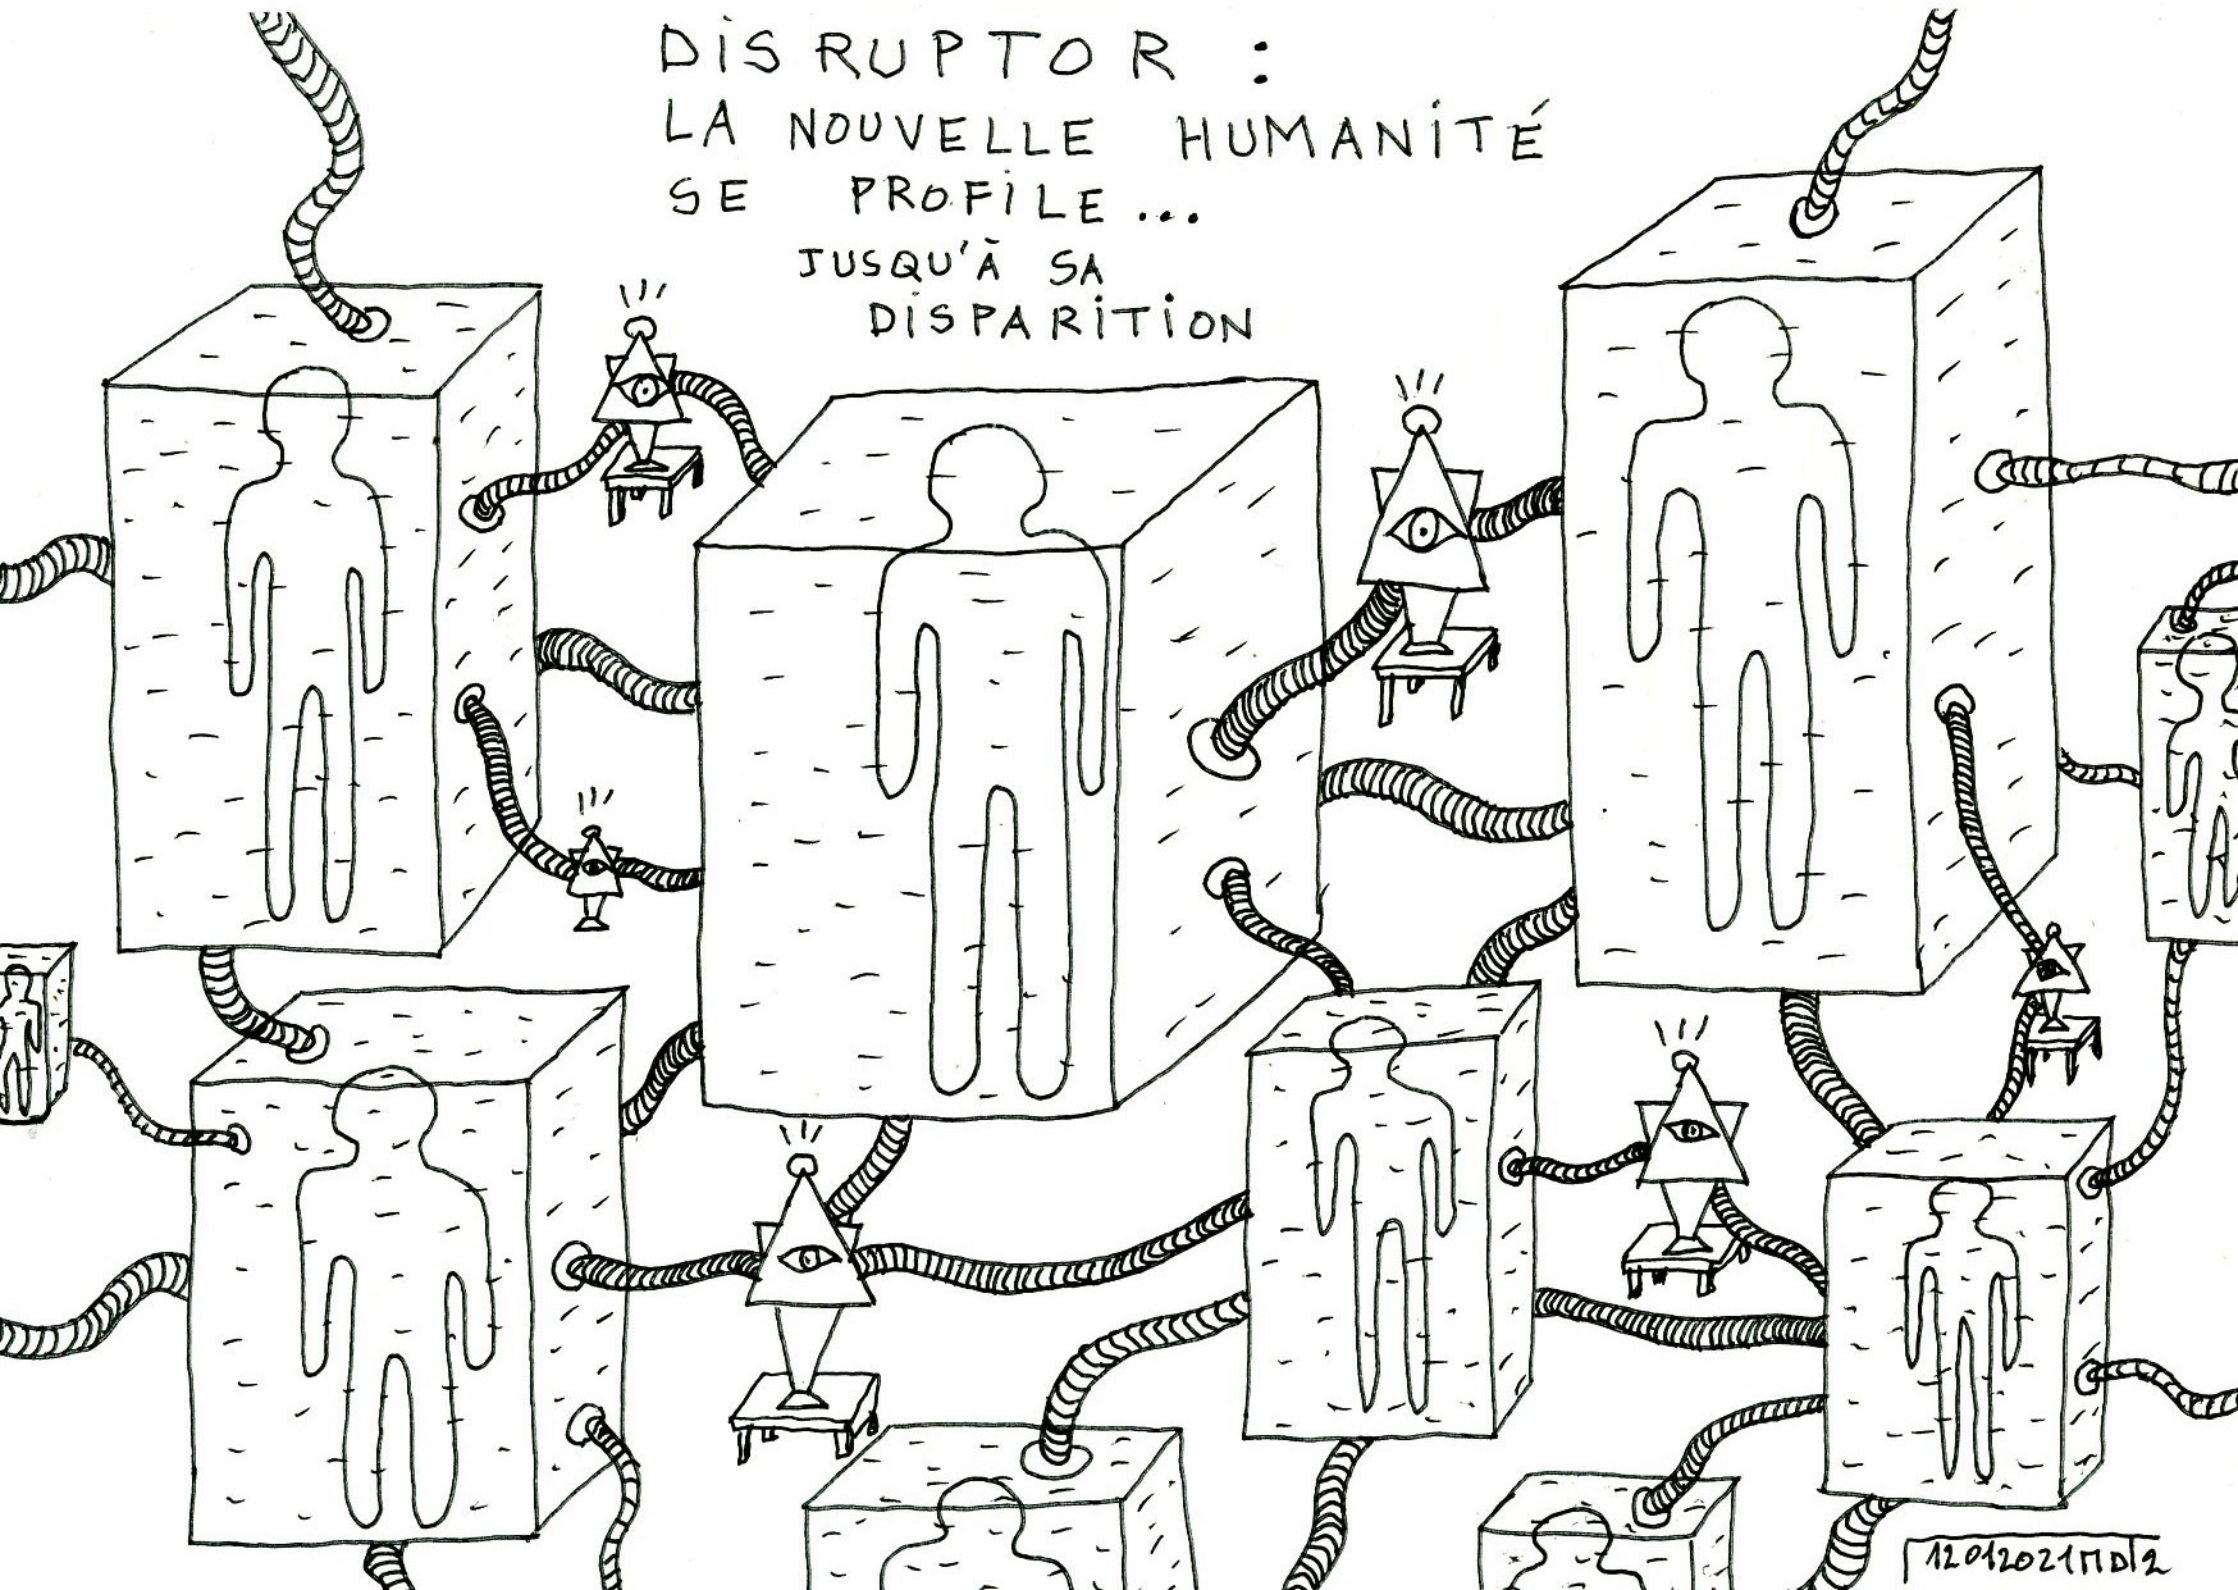 DISRUPTOR :
LA NOUVELLE HUMANITÉ
SE PROFILE...
JUSQU'À SA
DISPARITION